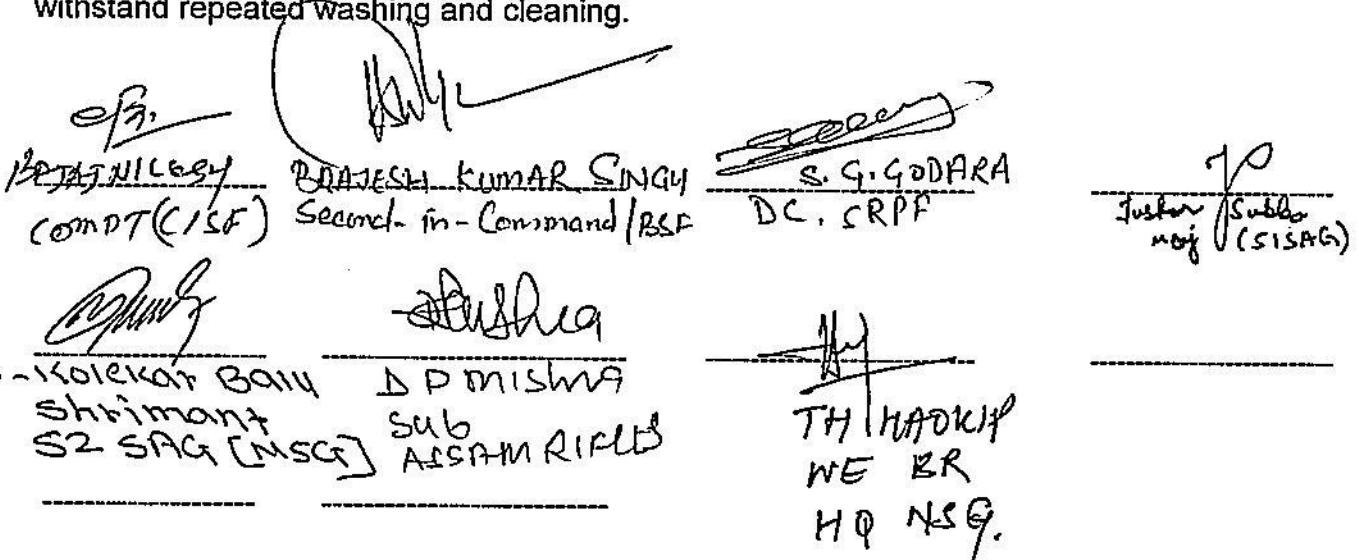 withstand repeated washing and cleaning.
COMDT (CISF)
BRAJESH KUMAR SINGH
Second-in-Command/BSF
S. G. GODARA
DC, CRPF
Maj (51SAG)
Kolekar Balu
Shrimant
S2 SAG [NSG]
D P Mishra
Sub
ASSAM RIFLES
TH HAOKIP
WE BR
HQ NSG.